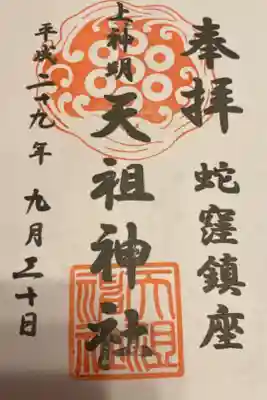 奉拝
蛇窪鎮座
上神明
天祖神社
平成二十九年九月三十日
天祖神社